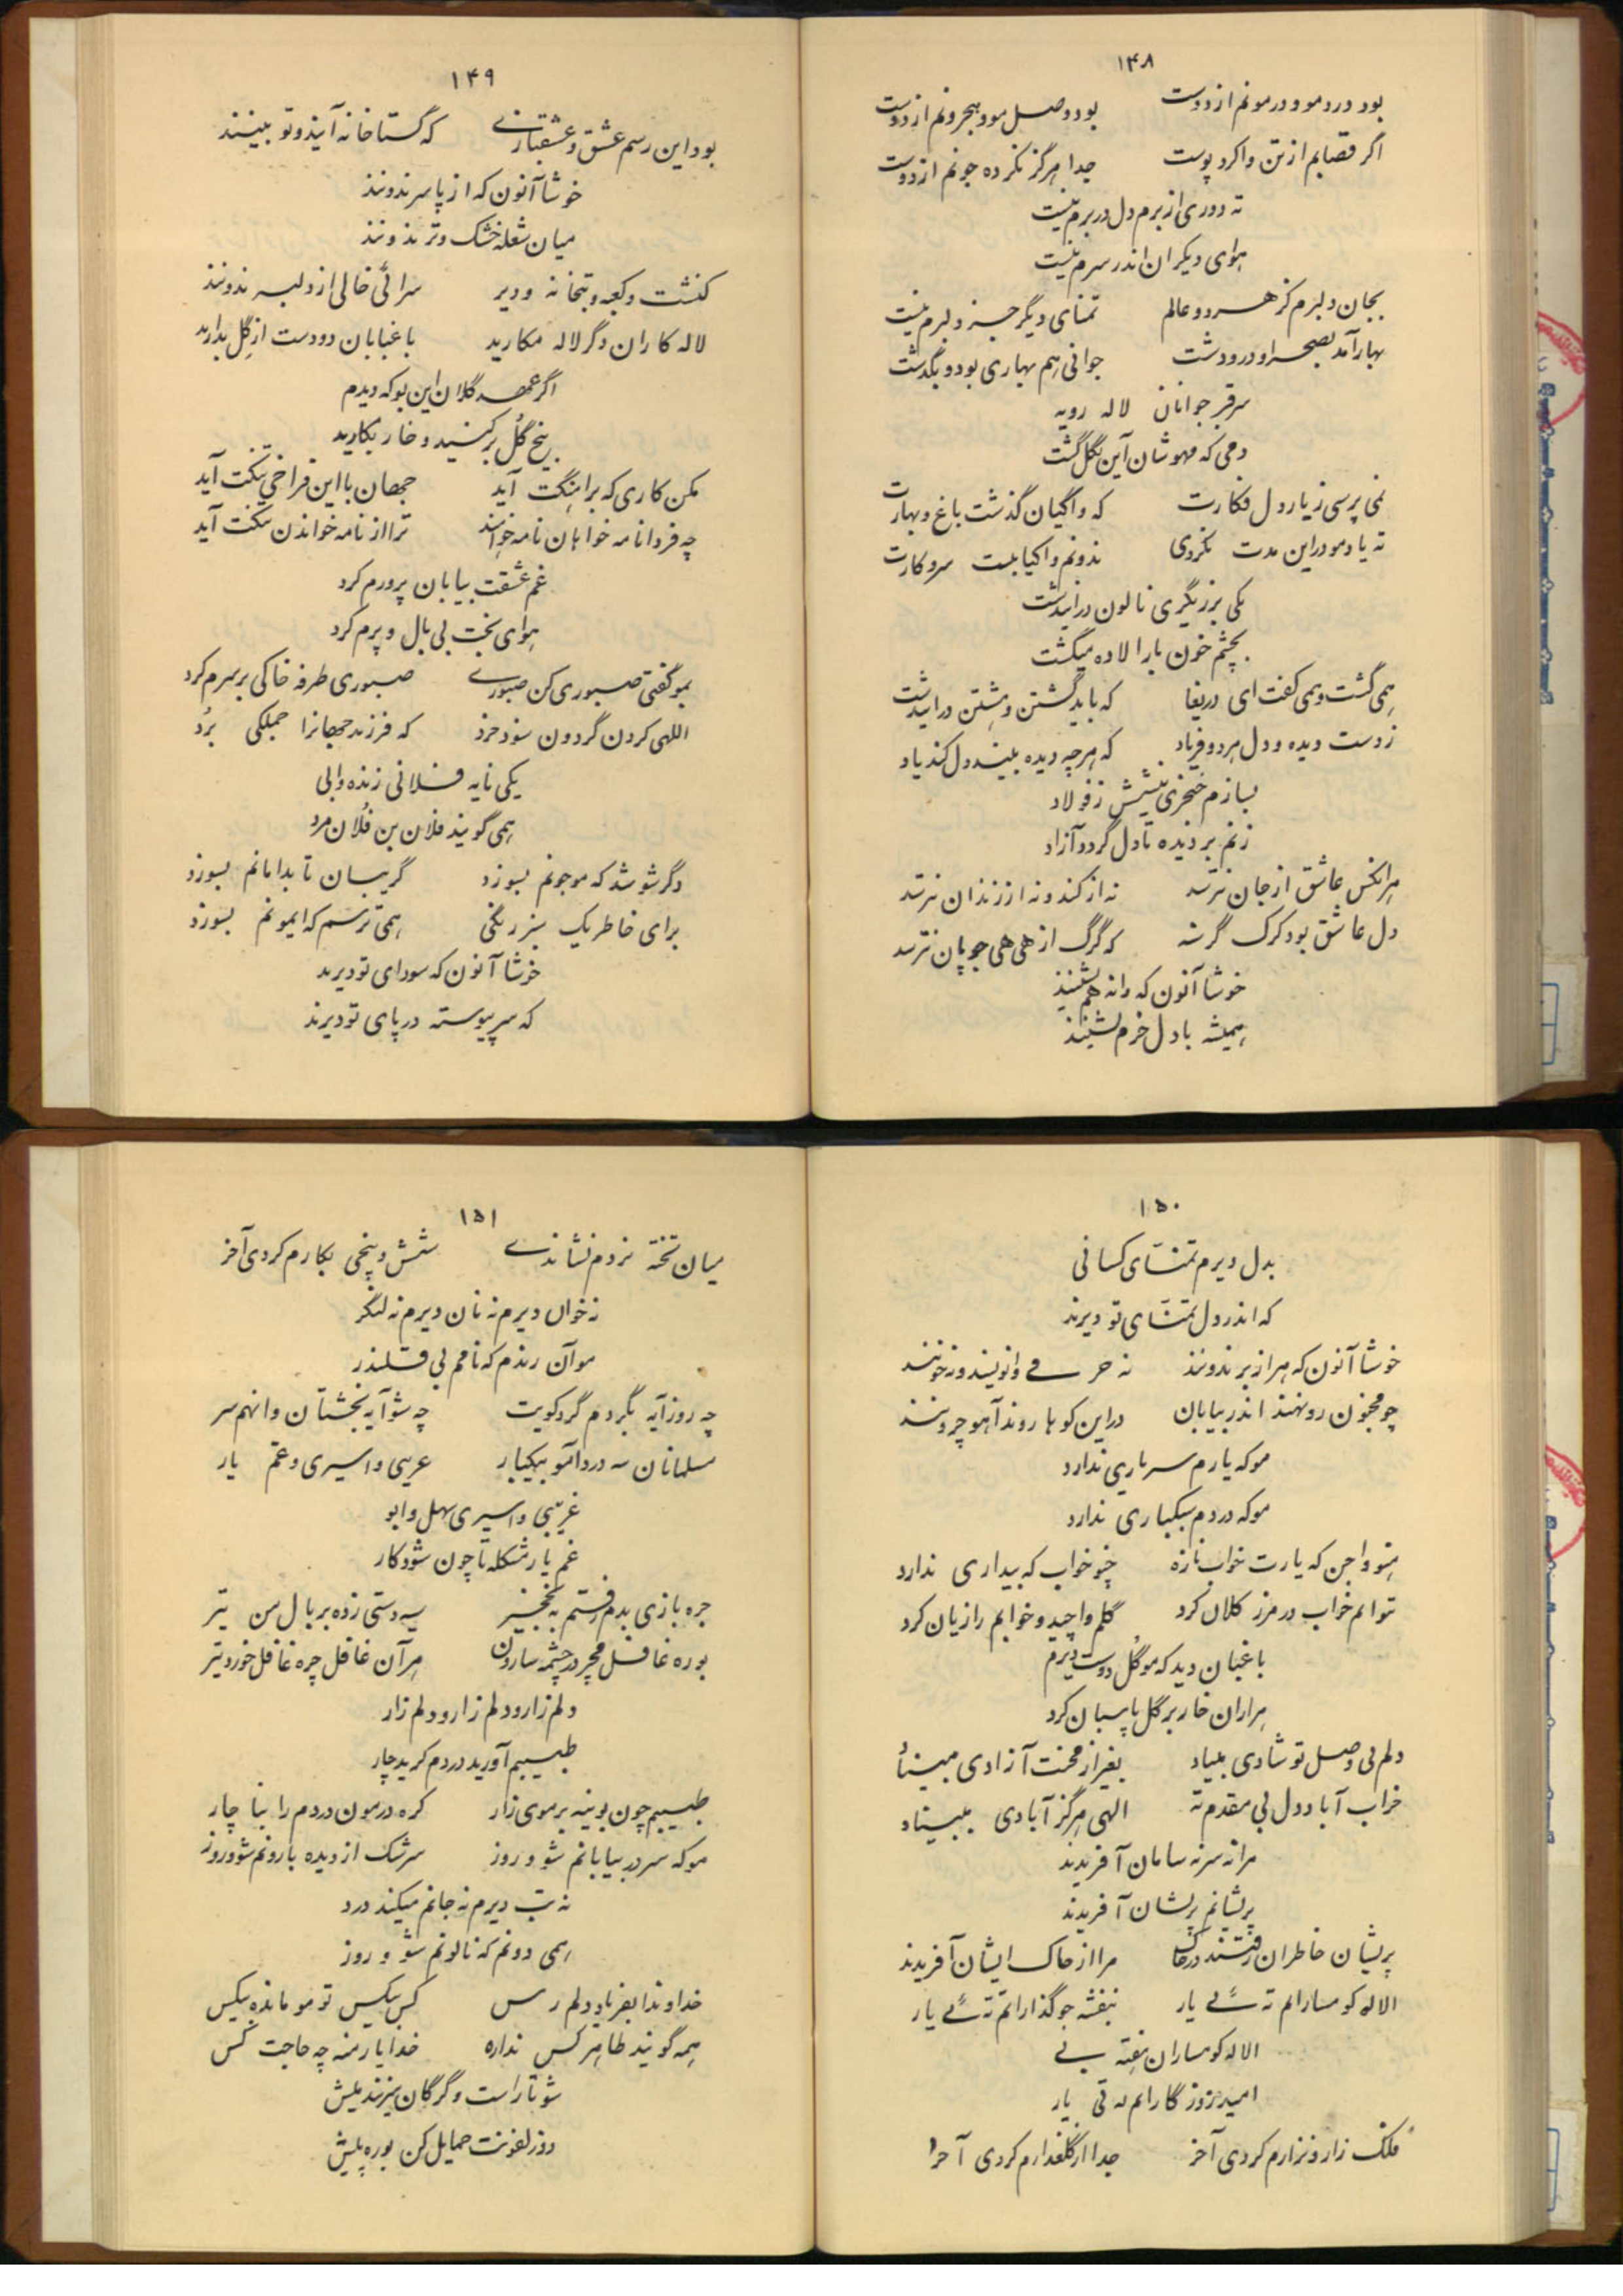 ۱۴۸
بود درد مو و درمونم از دوست بود وصل مو و هجرونم از دوست
اگر قصابم از تن واکرد پوست جدا هرگز نکرده جونم از دوست
ته دوری از برم دل در برم نیست
هوای دیگران اندر سرم نیست
بجان دلبرم کز هر دو عالم تمنای دیگر جز دلبرم نیست
بهار آمد بصحرا و در و دشت جوانی هم بهاری بود و بگذشت
سر قبر جوانان لاله رویه
دمی که مهوشان آین بگلگشت
نمی پرسی ز یار دل فکارت که واکیان گذشت باغ و بهارت
ته یاد مو در این مدت نکردی ندونم واکیا بست سر و کارت
یکی برزیگری نالون در این دشت
بچشم خون بار الاله میکشت
همی گشت و همی گفت ای دریغا که باید کشتن و هشتن در این دشت
ز دست دیده و دل هر دو فریاد که هر چه دیده بیند دل کند یاد
بسازم خنجری نیشش ز فولاد
زنم بر دیده تا دل گردد آزاد
هر انکس عاشق از جان نترسد نه از کند و نه از زندان نترسد
دل عاشق بود گرگ گرسنه که گرگ از هی هی چوپان نترسد
خوشا آنون که وا ته هم نشینند
همیشه با دل خرم نشینند
۱۴۹
بود این رسم عشق و عشقبازی که گستاخانه آیند و تو بینند
خوشا آنون که از پا سر ندونند
میان شعله خشک و تر ندونند
کنشت و کعبه و بتخانه و دیر سرائی خالی از دلبر ندونند
لاله کاران دگر لاله مکارید باغبانان دو دست از گل بدارید
اگر عهد گلان این بو که دیدم
بیخ گل برکنید و خار بکارید
مکن کاری که بر پا سنگت آید جهان با این فراخی تنگت آید
چه فردا نامه خوانان نامه خوانند ترا از نامه خواندن ننگت آید
غم عشقت بیابان پرورم کرد
هوای بخت بی بال و پرم کرد
بمو گفتی صبوری کن صبوری صبوری طرفه خاکی بر سرم کرد
اللهی گردن گردون شود خرد که فرزند جهانرا جملگی برد
یکی نایه فلانی زنده وابی
همی گویند فلان بن فلان مرد
دگر شو شد که مو جونم بسوزد گریبان تا بدامانم بسوزد
برای خاطر یک سبز رنگی همی ترسم که ایمونم بسوزد
خوشا آنون که سودای تو دیرند
که سر پیوسته در پای تو دیرند
۱۵۰
بدل دیرم تمنای کسانی
که اندر دل تمنای تو دیرند
خوشا آنون که هر از بر ندونند نه حرفی وانویسند و نه خونند
چو مجنون رو نهند اندر بیابان در این کوها روند آهو چرونند
مو که یارم سر یاری ندارد
مو که دردم سبکباری ندارد
همو واجن که یارت خواب نازه چو خواب که بیداری ندارد
توانم خواب در مرز گلان کرد گلم واچید و خوابم را زیان کرد
باغبان دید که مو گل دوست دیرم
هزاران خار بر گل پاسبان کرد
دلم بی وصل تو شادی مبیناد بغیر از محنت آزادی مبیناد
خراب آباد دل بی مقدم ته الهی هرگز آبادی مبیناد
مرا نه سر نه سامان آفریدند
پریشانم پریشان آفریدند
پریشان خاطران رفتند در خاک مرا از خاک ایشان آفریدند
الالو کوهسارانم ته ئی یار بنفشه جو کنارانم ته ئی یار
الاله کوهساران هفته بی
امید روزگارانم ته ئی یار
فلک زار و نزارم کردی آخر جدا از گلعذارم کردی آخر
۱۵۱
میان تخته نردم نشاندی شش و پنجی بکارم کردی آخر
نه خوان دیرم نه نان دیرم نه لنگر
مو آن رندم که نامم بی قلندر
چه روز آیه بگردم گرد کویت چه شو آیه بخشتان وانهم سر
مسلمانان سه درد آمو بیکبار غریبی و اسیری و غم یار
غریبی و اسیری سهل وابو
غم یار مشکله تا چون شود کار
جره بازی بدم رفتم به نخجیر سیه دستی زده بر بال من تیر
بوره غافل مچر در چشمه ساران هر آن غافل چره غافل خورد تیر
دلم زار و دلم زار و دلم زار
طبیبم آورید دردم کرید چار
طبیبم چون بوینه بر موی زار کره درمون دردم را بنا چار
مو که سر در بیابانم شو و روز سرشک از دیده بارونم شو و روز
نه تب دیرم نه جانم میکند درد
همی دونم که نالونم شو و روز
خداوندا بفریاد دلم رس کس بیکس تو مو مانده بیکس
همه گویند طاهر کس نداره خدا یار منه چه حاجت کس
شو تار است و گرگان میزنند میش
دو زلفونت حمایل کن بوره پیش